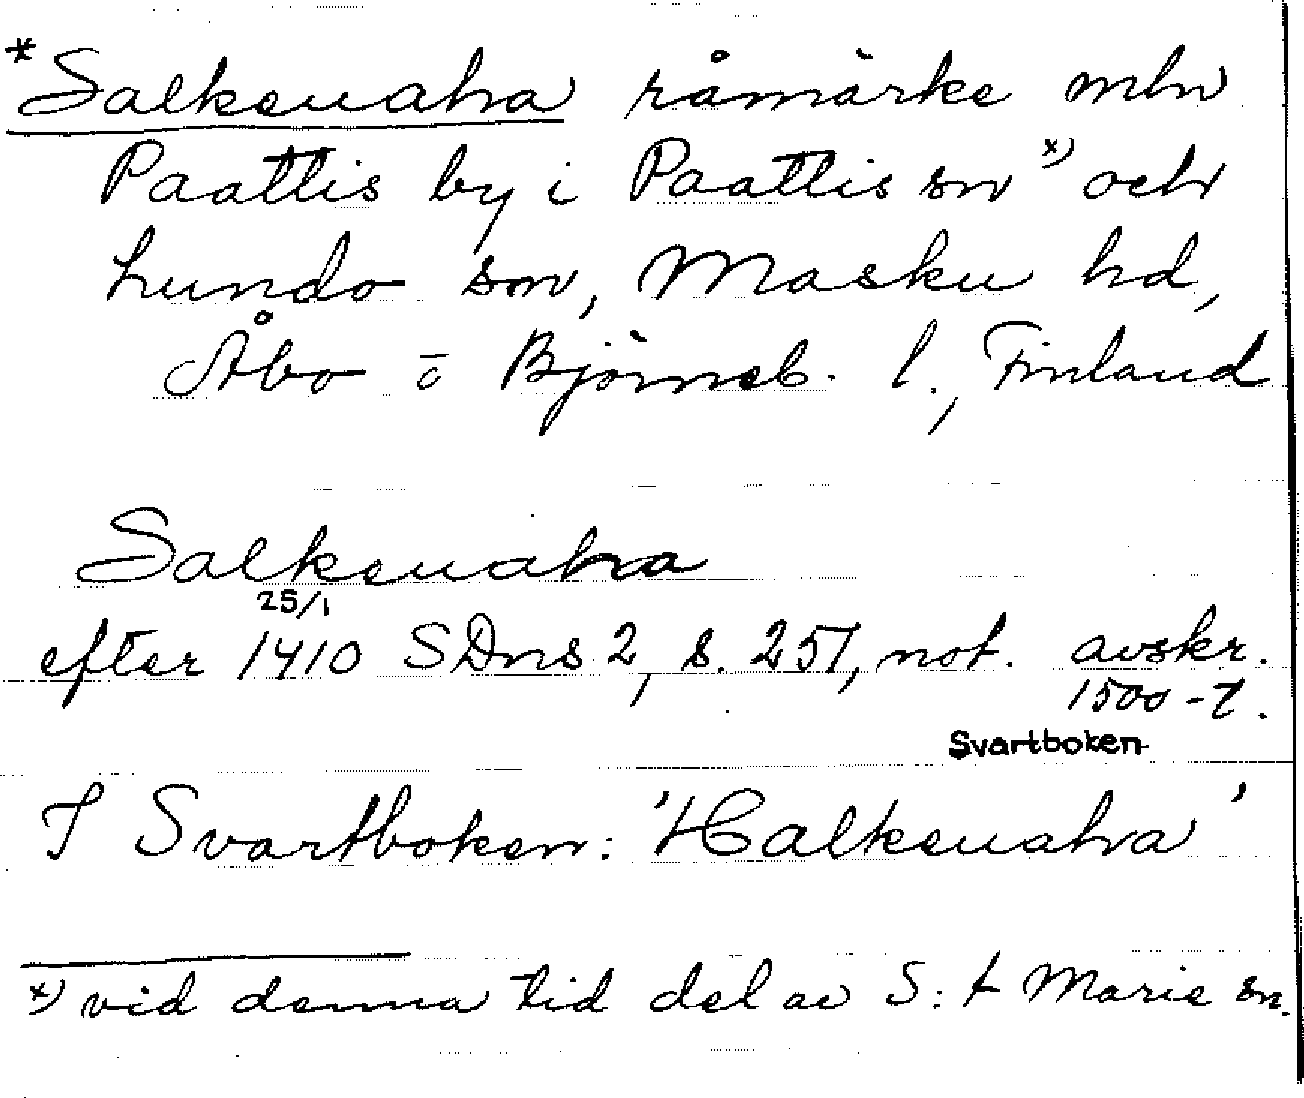 *Salkeuaha råmärke mln
Paattis by i Paattis sn x) och
Lundo sn, Masku hd,
Åbo o Björneb. l., Finland
Salkeuaha
25/1
efter 1410 SDns 2, s. 257, not. avskr.
1500-t.
Svartboken
I Svartboken: 'Halkeuaha'
x) vid denna tid del av S:t Marie sn.